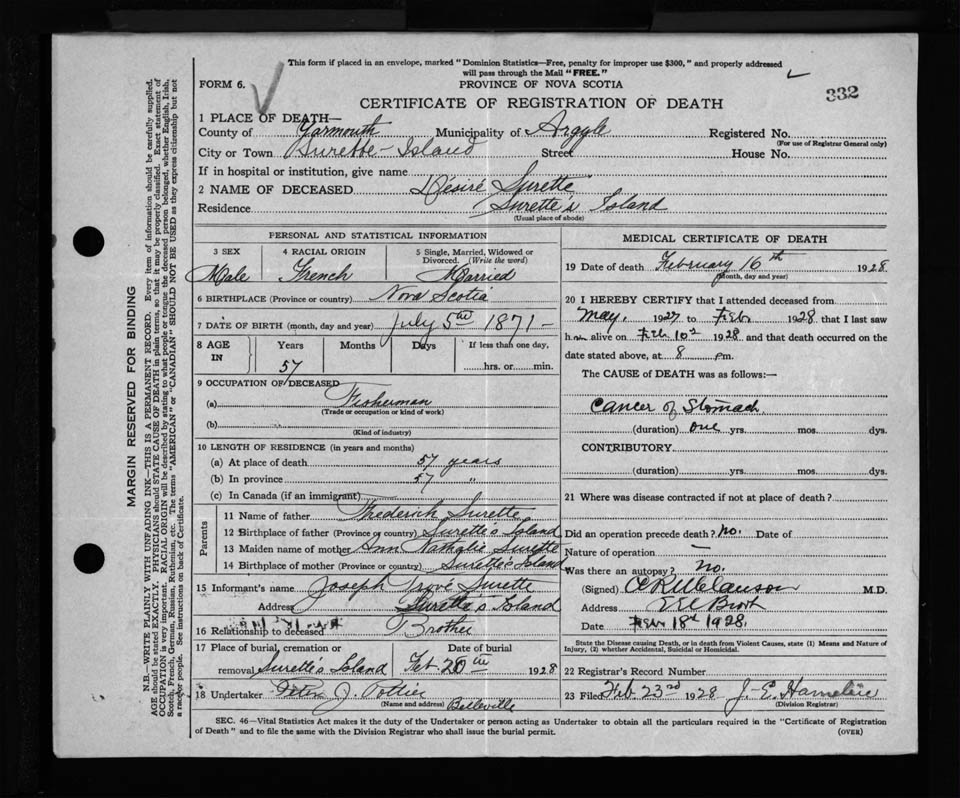 This form if placed in an envelope, marked "Dominion Statistics—Free, penalty for improper use $300," and properly addressed
will pass through the Mail "FREE."
FORM 6.
PROVINCE OF NOVA SCOTIA
332
CERTIFICATE OF REGISTRATION OF DEATH
1 PLACE OF DEATH—
County of Yarmouth Municipality of Argyle Registered No.
(For use of Registrar General only)
City or Town Surette-Island Street House No.
If in hospital or institution, give name
2 NAME OF DECEASED Désiré Surette
Residence Surette's Island
(Usual place of abode)
PERSONAL AND STATISTICAL INFORMATION
3 SEX 4 RACIAL ORIGIN 5 Single, Married, Widowed or Divorced. (Write the word)
Male French Married
6 BIRTHPLACE (Province or country) Nova Scotia
7 DATE OF BIRTH (month, day and year) July 5th 1871-
8 AGE IN Years Months Days If less than one day,
57 hrs. or min.
9 OCCUPATION OF DECEASED
(a) Fisherman
(Trade or occupation or kind of work)
(b)
(Kind of industry)
10 LENGTH OF RESIDENCE (in years and months)
(a) At place of death 57 years
(b) In province 57 "
(c) In Canada (if an immigrant)
Parents
11 Name of father Frederick Surette
12 Birthplace of father (Province or country) Surette's Island
13 Maiden name of mother Ann Nathalie Surette
14 Birthplace of mother (Province or country) Surettes Island
15 Informant's name Joseph Surette
Address Surette's Island
16 Relationship to deceased Brother
17 Place of burial, cremation or Date of burial
removal Surette's Island Feb 20th 1928
18 Undertaker Peter J. Pottier
(Name and address) Belleville
MEDICAL CERTIFICATE OF DEATH
19 Date of death February 16th 1928
(Month, day and year)
20 I HEREBY CERTIFY that I attended deceased from
May, 1927 to Feb. 1928 that I last saw
him alive on Feb 10th 1928 and that death occurred on the
date stated above, at 8 pm.
The CAUSE of DEATH was as follows:—
Cancer of Stomach
(duration) one yrs. mos. dys.
CONTRIBUTORY
(duration) yrs. mos. dys.
21 Where was disease contracted if not at place of death?
Did an operation precede death? no. Date of
Nature of operation —
Was there an autopsy? no.
(Signed) M.D.
Address
Date Feb 18th 1928.
State the Disease causing Death, or in death from Violent Causes, state (1) Means and Nature of
Injury, (2) whether Accidental, Suicidal or Homicidal.
22 Registrar's Record Number
23 Filed Feb 23rd 1928 J. E.
(Division Registrar)
SEC. 46—Vital Statistics Act makes it the duty of the Undertaker or person acting as Undertaker to obtain all the particulars required in the "Certificate of Registration
of Death" and to file the same with the Division Registrar who shall issue the burial permit.
(OVER)
MARGIN RESERVED FOR BINDING
N.B.—WRITE PLAINLY, WITH UNFADING INK—THIS IS A PERMANENT RECORD. Every item of information should be carefully supplied.
AGE should be stated EXACTLY. PHYSICIANS should STATE CAUSE OF DEATH in plain terms, so that it may be properly classified. Exact statement of
OCCUPATION is very important. RACIAL ORIGIN will be described by stating to what people or tongue the deceased person belonged, whether English, Irish,
Scotch, French, German, Russian, Ruthenian, etc. The terms "AMERICAN" or "CANADIAN" SHOULD NOT BE USED as they express citizenship but not
a race or people. See instructions on back of Certificate.